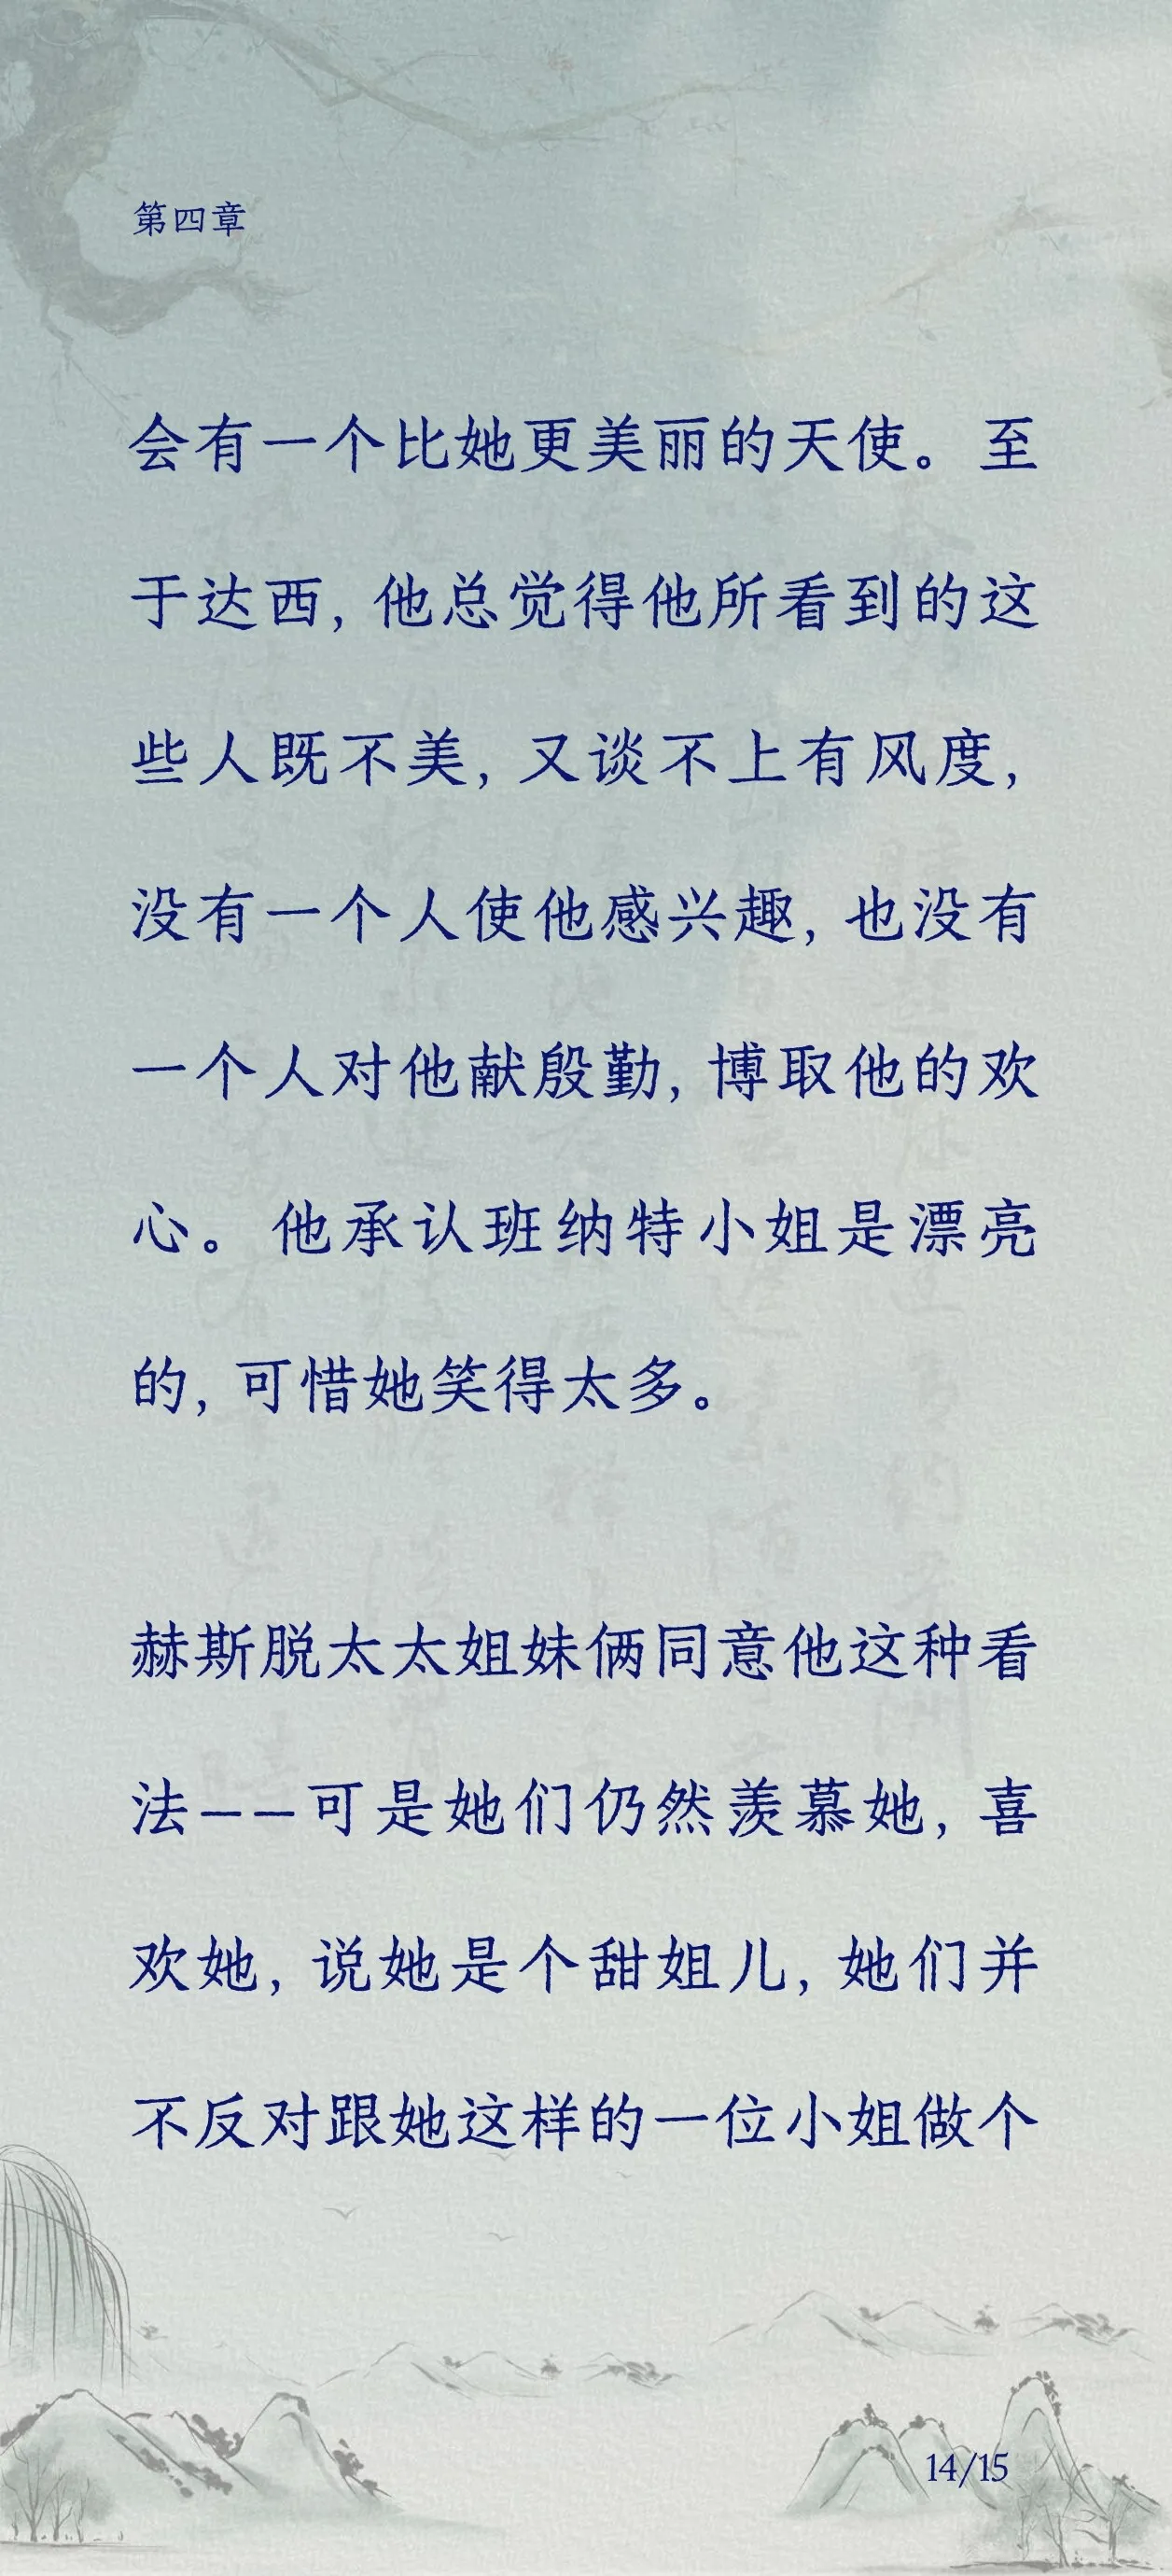 第四章
会有一个比她更美丽的天使。至
于达西, 他总觉得他所看到的这
些人既不美, 又谈不上有风度,
没有一个人使他感兴趣, 也没有
一个人对他献殷勤, 博取他的欢
心。他承认班纳特小姐是漂亮
的, 可惜她笑得太多。
赫斯脱太太姐妹俩同意他这种看
法——可是她们仍然羡慕她, 喜
欢她, 说她是个甜姐儿, 她们并
不反对跟她这样的一位小姐做个
14/15